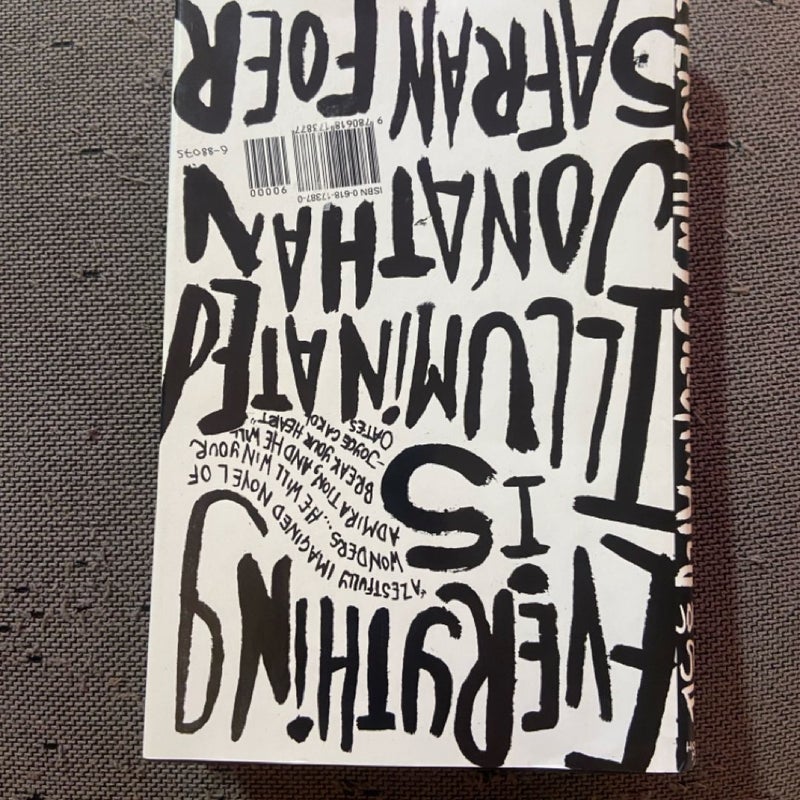 EVERYTHING
"A ZESTFULLY IMAGINED NOVEL OF
WONDERS... HE WILL WIN YOUR
ADMIRATION, AND HE WILL
BREAK YOUR HEART."
-JOYCE CAROL
OATES
IS
ILLUMINATED
JONATHAN
ISBN 0-618-17387-0
90000
9 780618 173877
6-88075
SAFRAN FOER